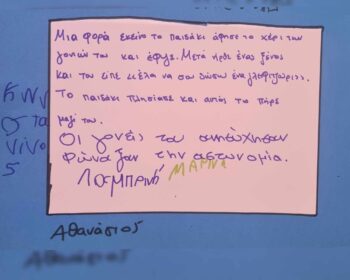 Μια φορά εκείνο το παιδάκι άφησε το χέρι των
γονιών του και έφυγε. Μετά ήρθε ένας ξένος
και του είπε «έλα να σου δώσω ένα γλειφιτζούρι».
Το παιδάκι πλησίασε και αυτός το πήρε
μαζί του.
Οι γονείς του ανησύχησαν
Φώναξαν την αστυνομία.
Λαμπρινή
ΜΑΡΙΝΑ
Αθανάσιος
Κων
στα
ντίνο
ς